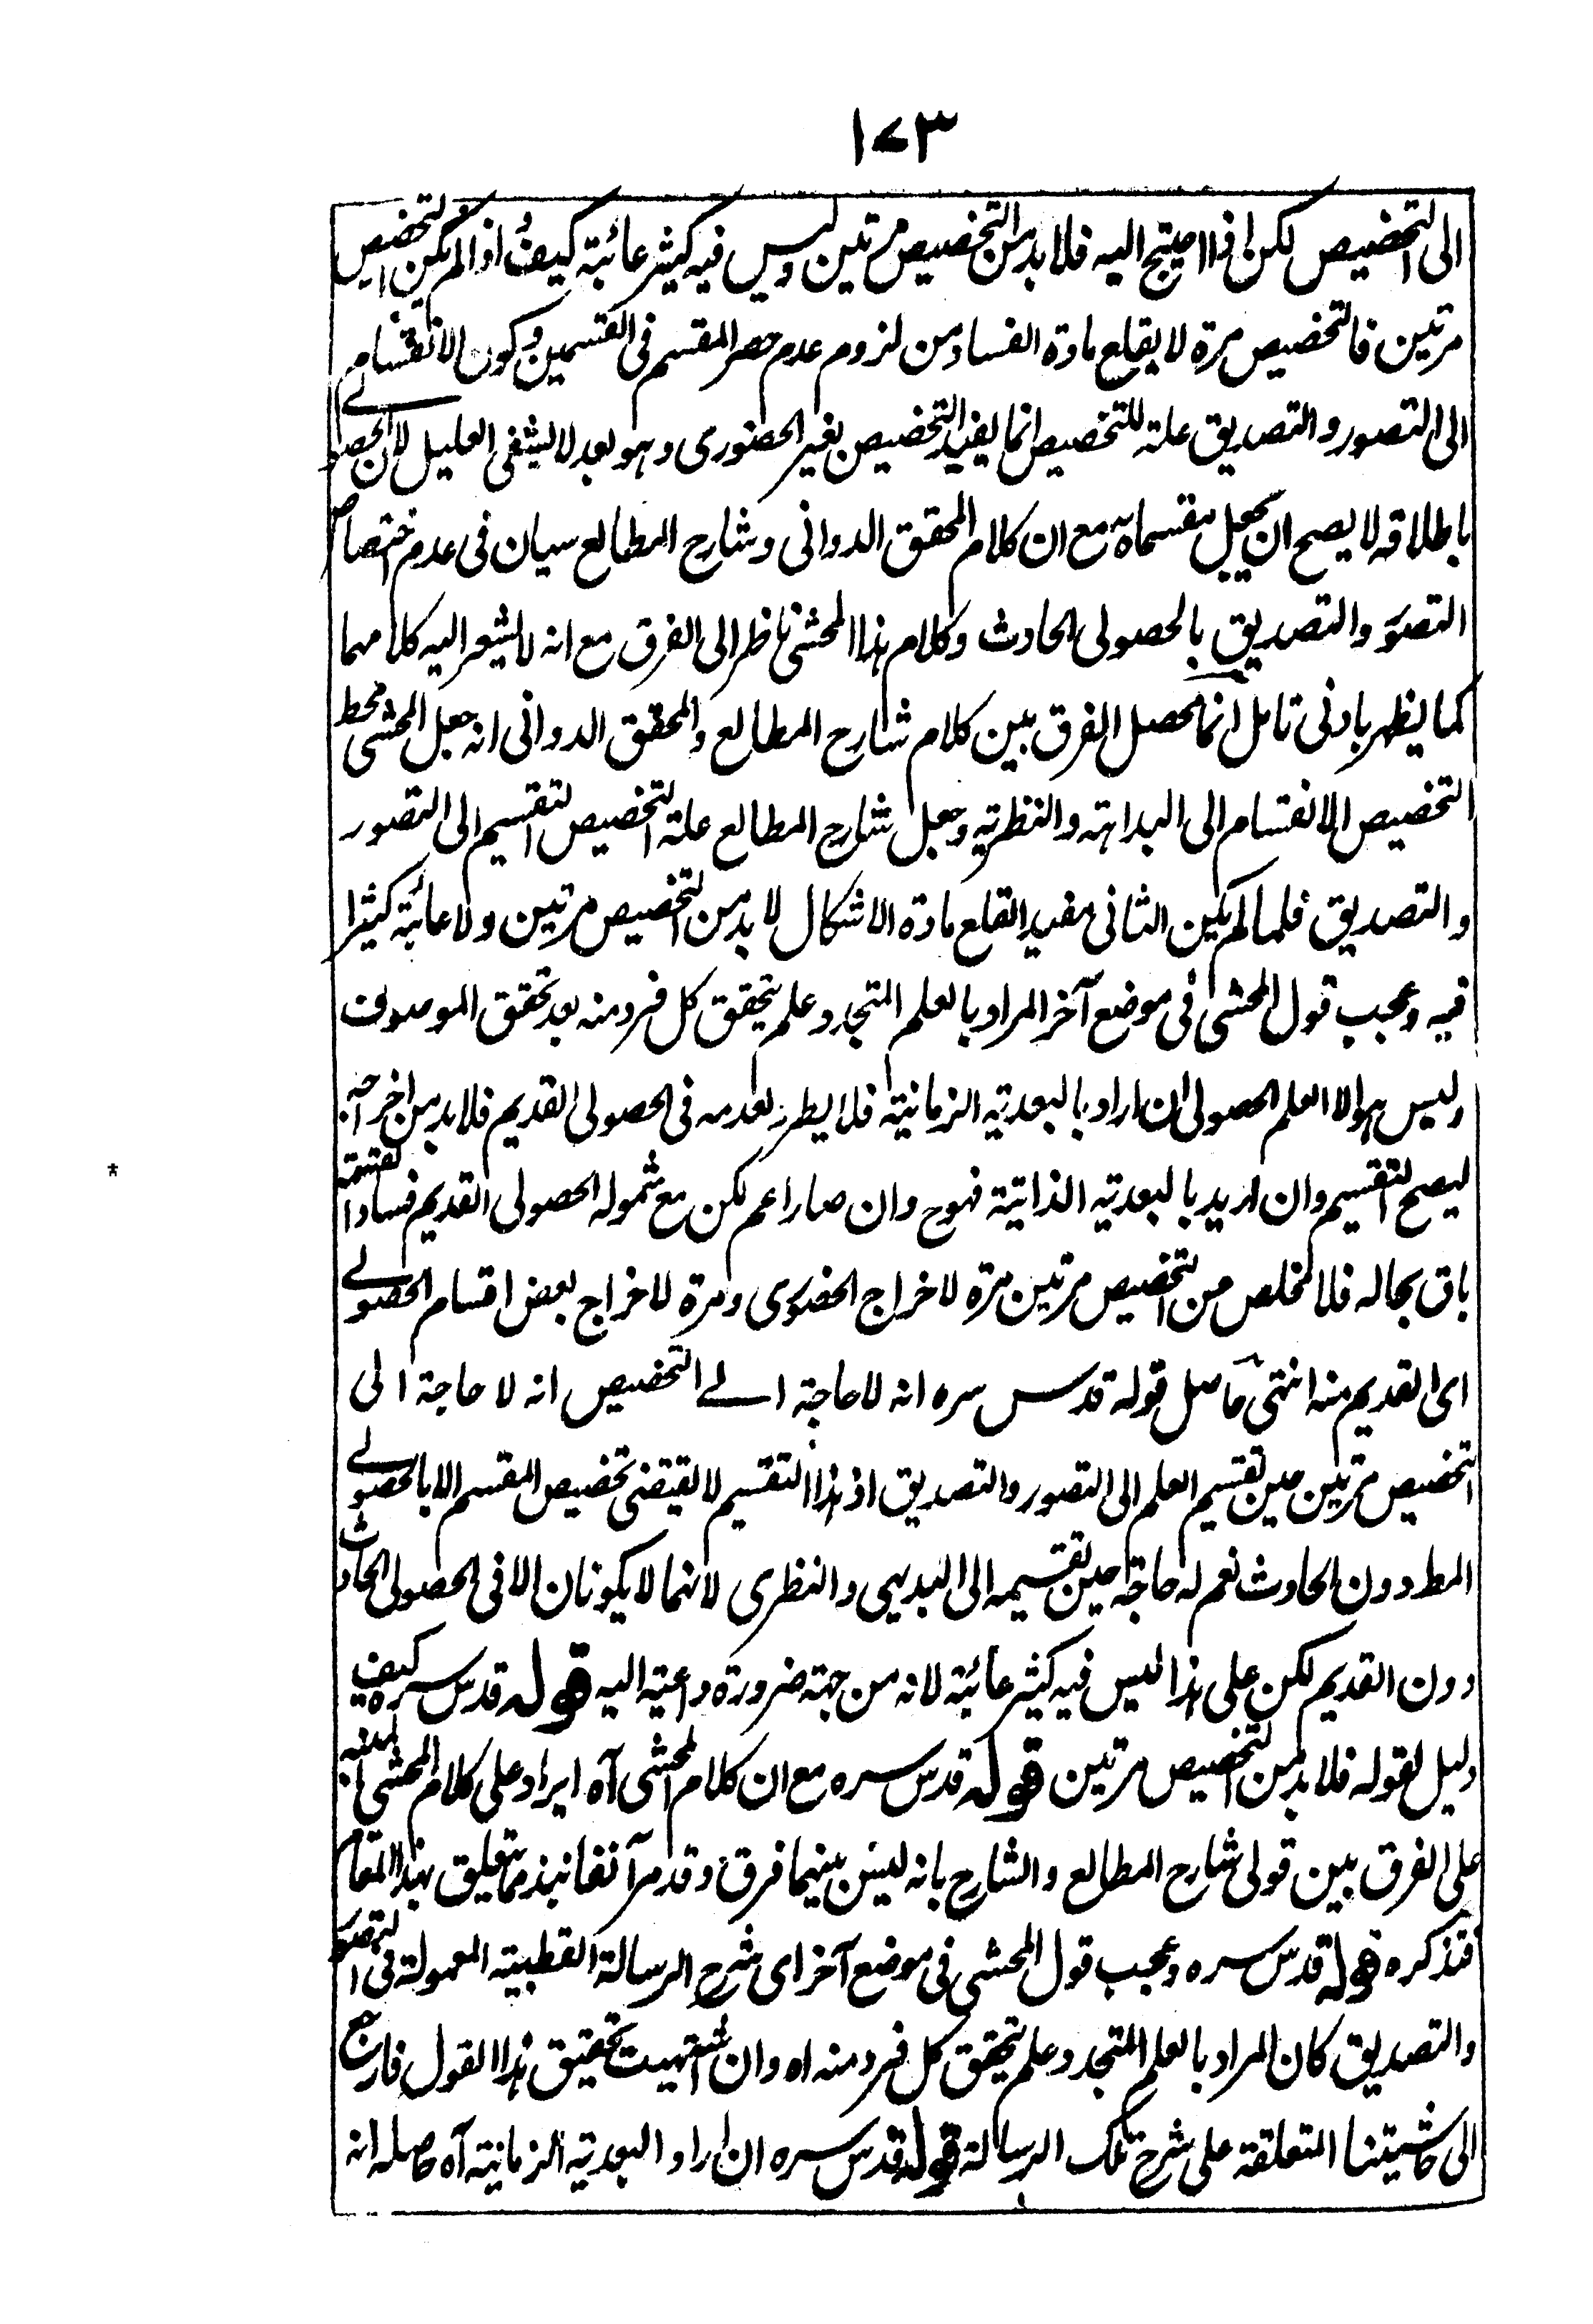 ١٧٣
الى التخصيص لكن اذا احتيج اليه فلا بد من التخصيص مرتين وليس فيه كثير عائبة كيف واذا لم يكن التخصيص
مرتين فالتخصيص مرة لا يقلع مادة الفساد من لزوم عدم حصر المقسم فى القسمين وكون الانقسام
الى التصور والتصديق علة للتخصيص انما يفيد التخصيص بغير الحضورى وهو بعد لا يشفى العليل لان الحصولے
باطلاقه لا يصح ان يجعل مقسما مع ان كلام المحقق الدوانى وشارح المطالع سيان فى عدم اختصاص
التصور والتصديق بالحصولى الحادث وكلام هذا المحشى ناظر الى الفرق مع انه لا يشعر اليه كلامهما
كما يظهر بادنى تامل انما يحصل الفرق بين كلام شارح المطالع والمحقق الدوانى انه جعل المحشى محط
التخصيص الانقسام الى البداهة والنظرية وجعل شارح المطالع علة التخصيص التقسيم الى التصور
والتصديق فلما لم يكن الثانى مفيد القلع مادة الاشكال لا بد من التخصيص مرتين ولا عائبة كثيرا
فيه وعجب قول المحشى فى موضع آخر المراد بالعلم المتجدد علم يتحقق كل فرد منه بعد تحقق الموصوف
وليس هو الا العلم الحصولى ان اراد بالبعدية الزمانية فلا يطرد بعدمه فى الحصولى القديم فلا بد من اخراجه
ليصح التقسيم وان اريد بالبعدية الذاتية فهوح وان صار اعم لكن مع شموله الحصولى القديم فساد القسمة
باق بحاله فلا مخلص من التخصيص مرتين مرة لاخراج الحضورى ومرة لاخراج بعض اقسام الحصولے
اى القديم منه انتهى حاصل قوله قدس سره انه لا حاجة الے التخصيص انه لا حاجة الى
التخصيص مرتين حين تقسيم العلم الى التصور والتصديق اذ هذا التقسيم لا يقتضى تخصيص المقسم الا بالحصولے
المط دون الحادث نعم له حاجة حين تقسيمه الى البديهى والنظرى لانهما لا يكونان الا فى الحصولى الحادث
دون القديم لكن على هذا ليس فيه كثير عائبة لانه من جهة ضرورة داعية اليه قوله قدس سره كيف
دليل لقوله فلا بد من التخصيص مرتين قوله قدس سره مع ان كلام المحشى آه ايراد على كلام المحشى
على الفرق بين قولى شارح المطالع والشارح بانه ليس بينهما فرق وقد مر آنفا نبذ مما يتعلق بهذا المقام
فتذكره قوله قدس سره وعجب قول المحشى فى موضع آخر اى شرح الرسالة القطبية المعمولة فى التصور
والتصديق كان المراد بالعلم المتجدد علم يتحقق كل فرد منه اه وان اشتهيت تحقيق هذا القول فارجع
الى حاشيتنا المتعلقة على شرح تلك الرسالة قوله قدس سره ان اراد البعدية الزمانية آه حاصله انه